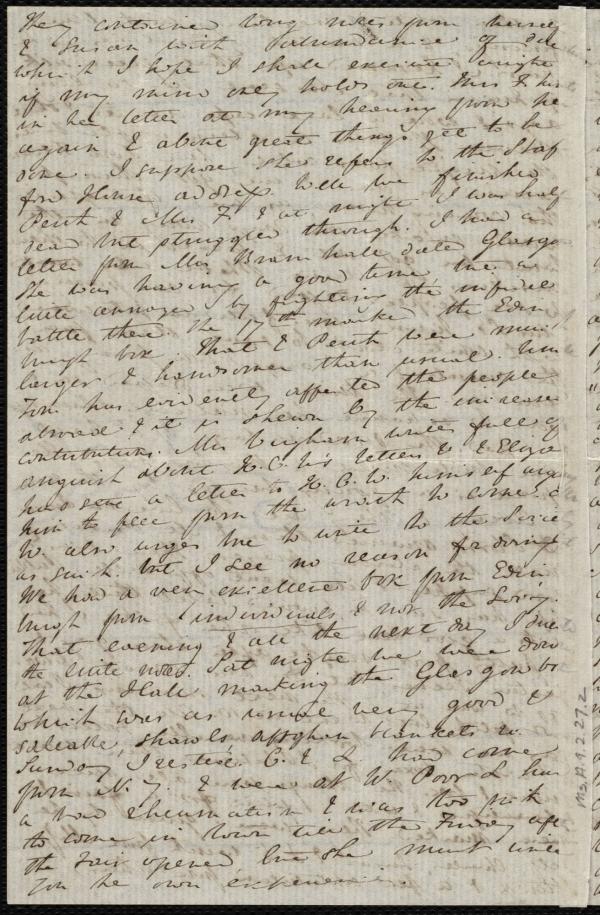 they contained long notes from herself
& Susan with abundance of
which I hope I shall execute aright
if my mind only holds out. Mrs F. h
in her letter at my hearing from her
again & about great things yet to be
done. I suppose she refers to the Staf
ford House address. Well we finished
Perth & Mrs F. & at night I was half
dead but struggled through. I had a
letter from Mrs. Bramhall date Glasgo
She was having a good time, tho' a
little annoyed by fighting the infidel
battle there. The 17th marked the Edin
burgh box. That & Perth were much
larger & handsomer than usual. Un
Tom has evidently affected the people
abroad & it is shewn by the increased
contributions. Mrs Vigham writes full of
anguish about H.C.W's letters & E. Eliza
has sent a letter to H.C.W. himself urg
him to flee from the wrath to come. E
W. also urges me to write to the Socie
as such. but I see no reason for doing
We had a very excellent box from Edin
burgh from individuals & not the Society.
That evening & all the next day I did
the little notes. Sat night we were down
at the Hall marking the Glasgow bo
which was as usual very good &
saleable, shawls, affghan blankets &c
Sunday I rested. C. & E & L had come
from N.Y. & were at W. Poor L has
a bad rheumatism & was too sick
to come in town till the Friday aft
the Fair opened but she must write
you her own experience.
Ms.A.9.2.27.2